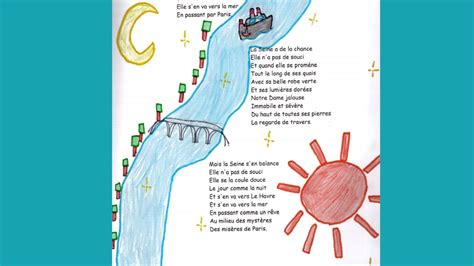 Elle s'en va vers la mer
En passant par Paris.
La Seine a de la chance
Elle n'a pas de souci
Et quand elle se promène
Tout le long de ses quais
Avec sa belle robe verte
Et ses lumières dorées
Notre Dame jalouse
Immobile et sévère
Du haut de toutes ses pierres
La regarde de travers.
Mais la Seine s'en balance
Elle n'a pas de souci
Elle se la coule douce
Le jour comme la nuit
Et s'en va vers Le Havre
Et s'en va vers la mer
En passant comme un rêve
Au milieu des mystères
Des misères de Paris.